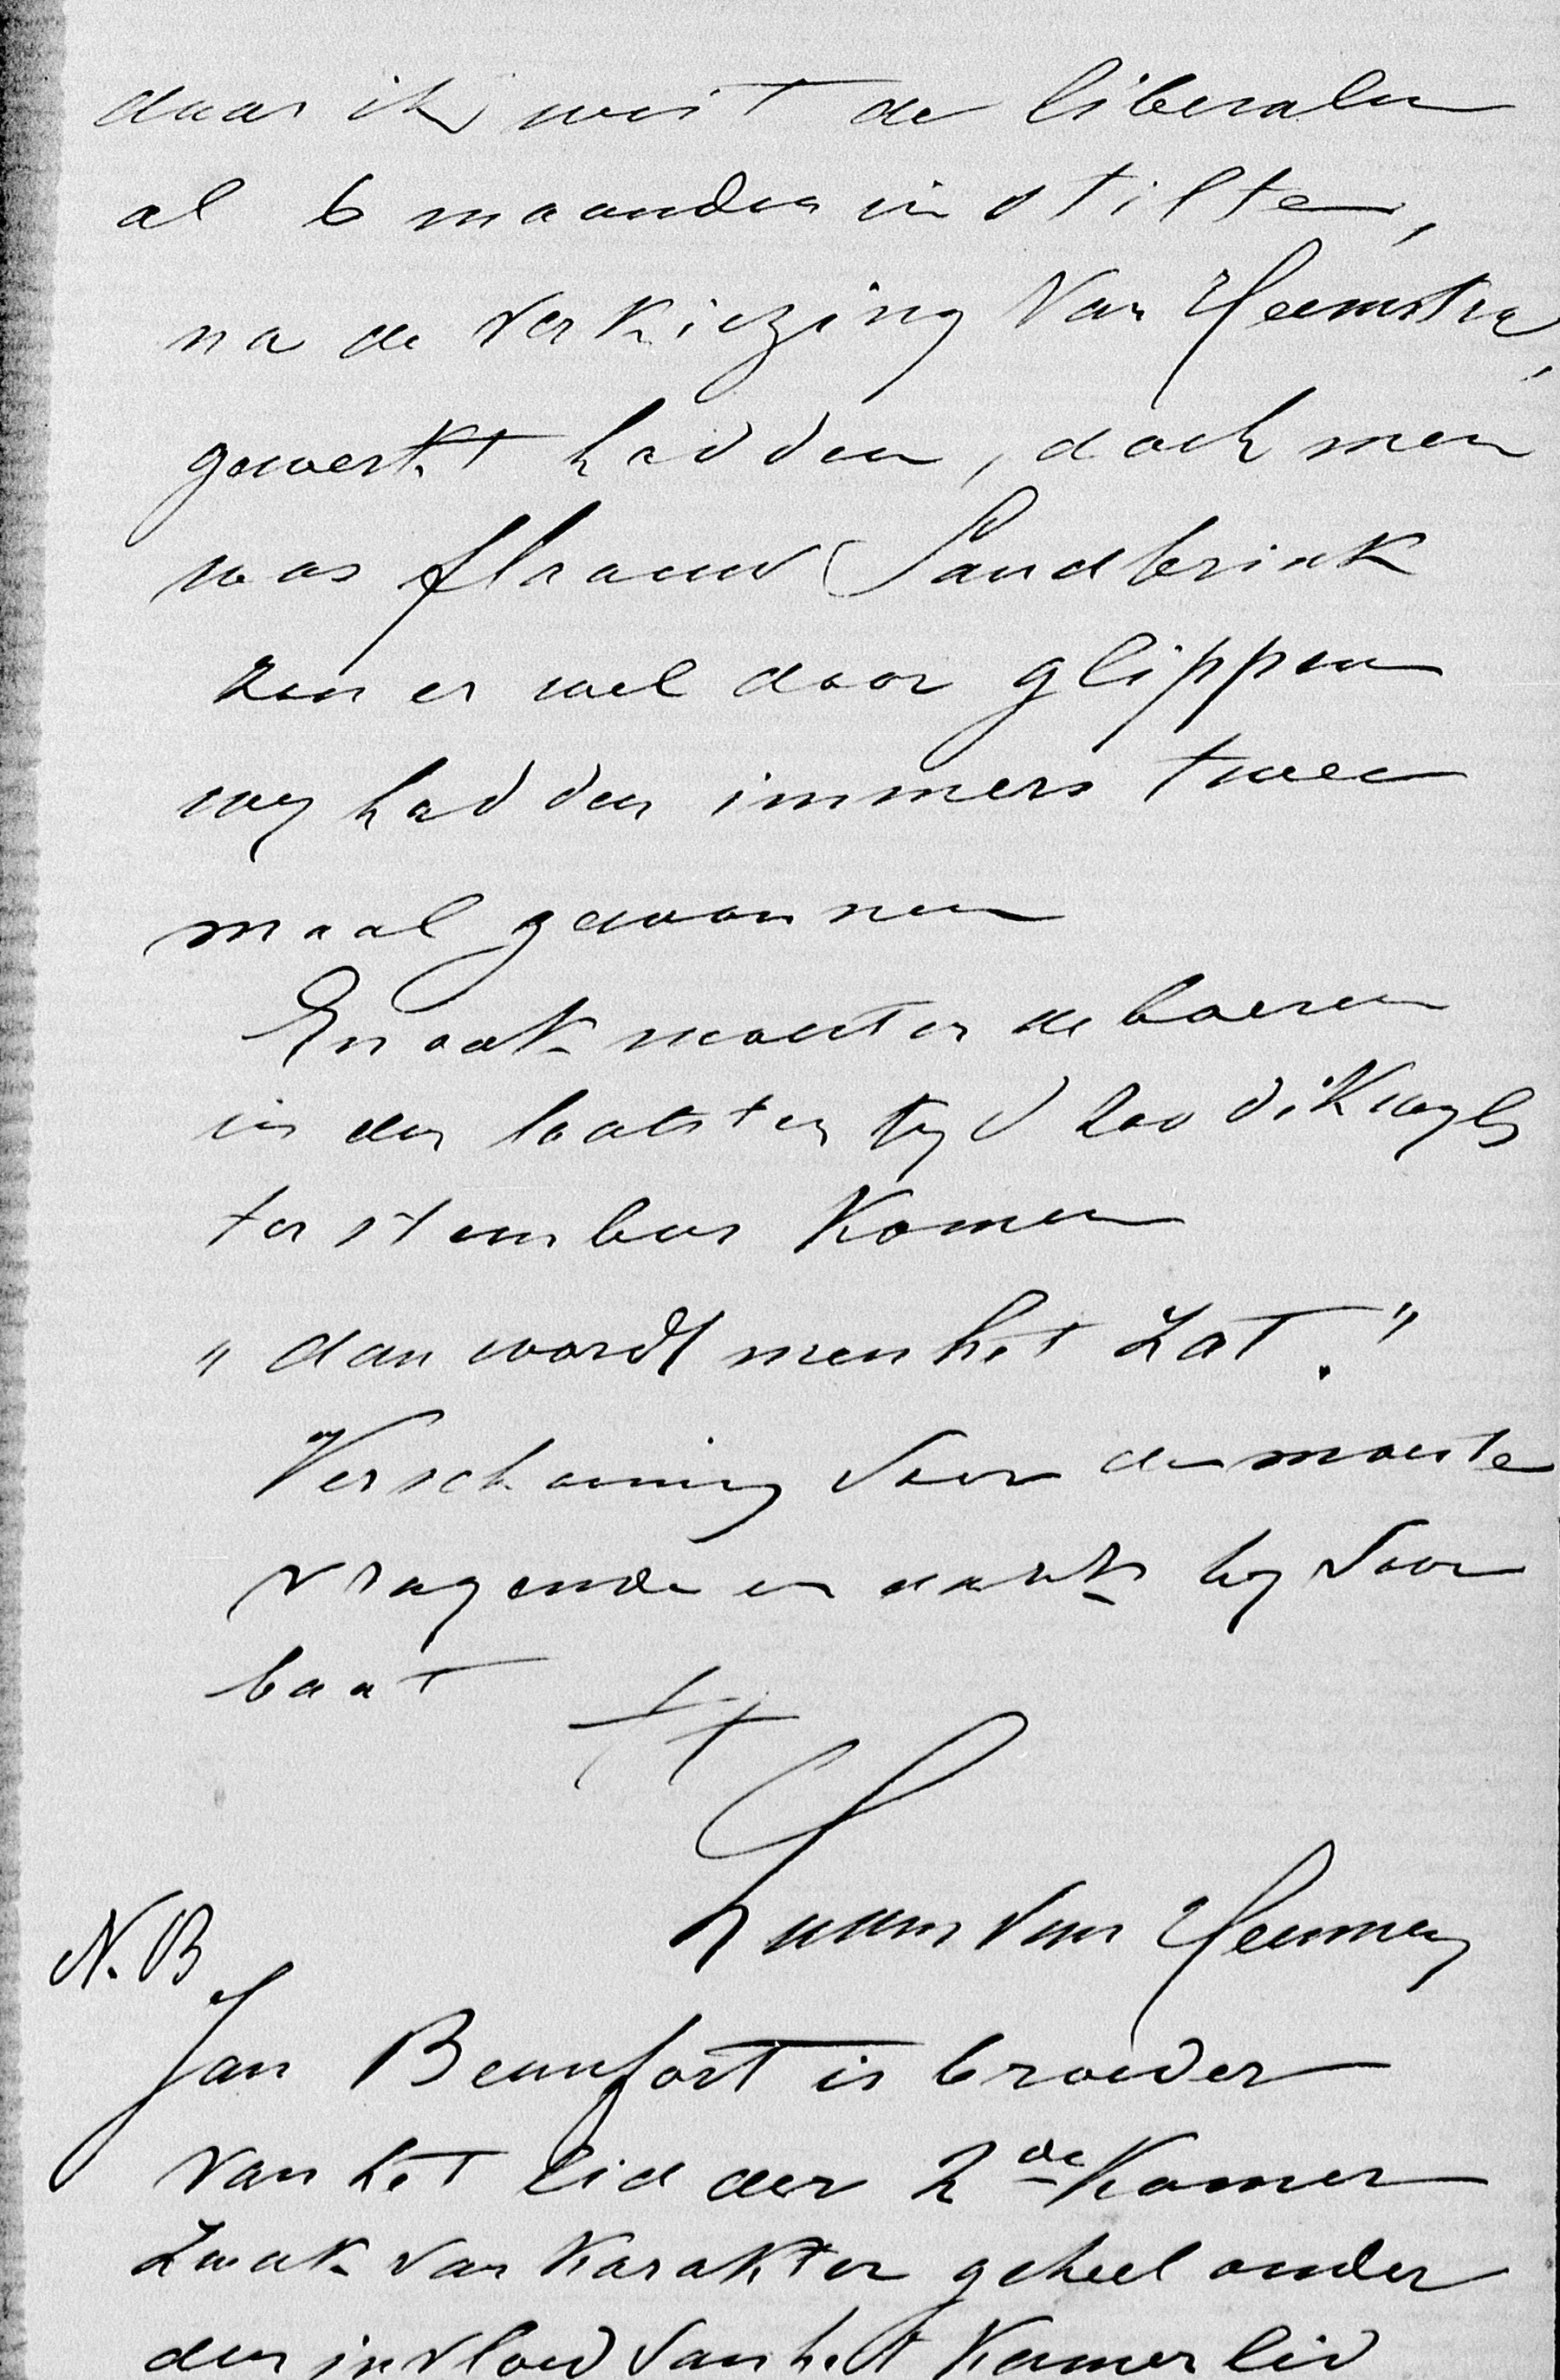 daar ik wist de liberalen
al 6 maanden in stilte,
na de verkiezing van Heemstra,
gewerkt hadden, doch men
was flaauw Sandbrink
zou er wel door glippen
wy hadden immers twee
maal gewonnen
En ook moeten de boeren
in den laatsten tyd zoo dikwyls
ter stembus komen
"dan wordt men het zat."
Verschooning voor de moeite
vragende en dank by voor
baat
tt
van Heemen
N.B
Jan Beaufort is broeder
van het lid der 2de Kamer
Zwak van karakter geheel onder
den invloed van het Kamerlid